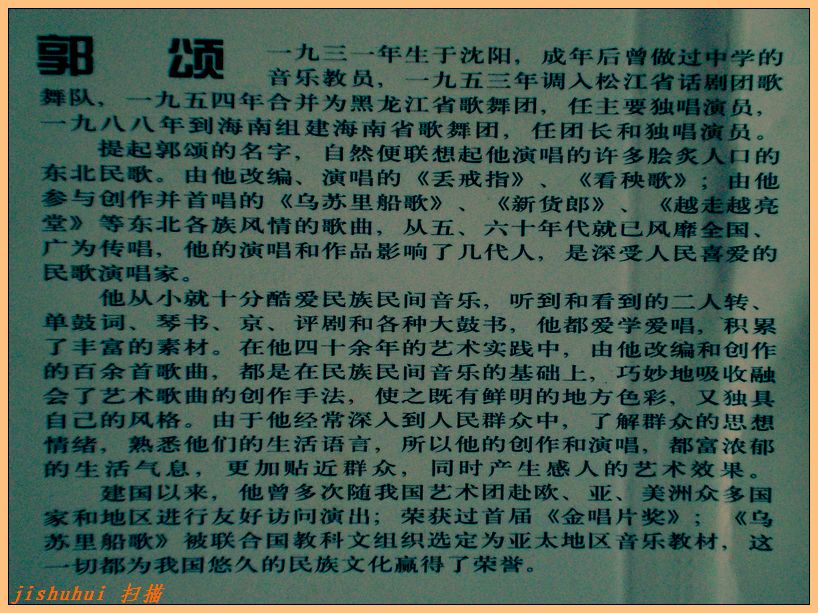 郭 颂
一九三一年生于沈阳，成年后曾做过中学的
音乐教员，一九五三年调入松江省话剧团歌
舞队，一九五四年合并为黑龙江省歌舞团，任主要独唱演员，
一九八八年到海南组建海南省歌舞团，任团长和独唱演员。
提起郭颂的名字，自然便联想起他演唱的许多脍炙人口的
东北民歌。由他改编、演唱的《丢戒指》、《看秧歌》；由他
参与创作并首唱的《乌苏里船歌》、《新货郎》、《越走越亮
堂》等东北各族风情的歌曲，从五、六十年代就已风靡全国、
广为传唱，他的演唱和作品影响了几代人，是深受人民喜爱的
民歌演唱家。
他从小就十分酷爱民族民间音乐，听到和看到的二人转、
单鼓词、琴书、京、评剧和各种大鼓书，他都爱学爱唱，积累
了丰富的素材。在他四十余年的艺术实践中，由他改编和创作
的百余首歌曲，都是在民族民间音乐的基础上，巧妙地吸收融
会了艺术歌曲的创作手法，使之既有鲜明的地方色彩，又独具
自己的风格。由于他经常深入到人民群众中，了解群众的思想
情绪，熟悉他们的生活语言，所以他的创作和演唱，都富浓郁
的生活气息，更加贴近群众，同时产生感人的艺术效果。
建国以来，他曾多次随我国艺术团赴欧、亚、美洲众多国
家和地区进行友好访问演出；荣获过首届《金唱片奖》；《乌
苏里船歌》被联合国教科文组织选定为亚太地区音乐教材，这
一切都为我国悠久的民族文化赢得了荣誉。
jishuhui 扫描